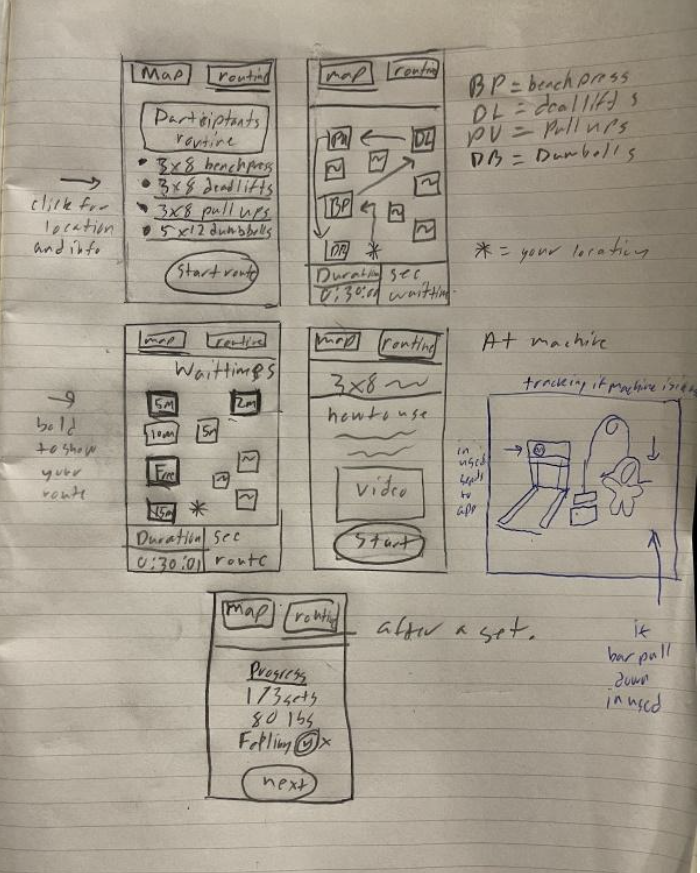 Map routine
Partisiptants
routine
3x8 benchpress
3x8 deadlifts
3x8 pull ups
5x12 dumbbells
Start route
click for
location
and info
map routine
PU DL
BP
DB *
Duration sec
0:30:01 waittim
BP = benchpress
DL = deallift s
PU = Pull ups
DB = Dumbells
* = your location
map routine
Waittimes
5m 2m
10m 5m
Free
15m *
Duration sec
0:30:01 route
bold
to show
your
route
map routine
3x8
how to use
video
Start
At machine
tracking if machine is
in
used
sends
to
app
if
bar pull
down
in used
map routine
Progress
1/3 sets
80 lbs
Felling x
next
after a set.